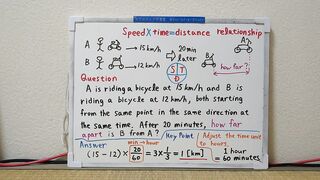 Speed X time = distance relationship
A → 15 km/h
B → 12 km/h
20 min later
A
B
S T
D
how far?
Question
A is riding a bicycle at 15 km/h and B is
riding a bicycle at 12 km/h, both starting
from the same point in the same direction at
the same time. After 20 minutes, how far
apart is B from A?
Key Point
Adjust the time unit to hours
Answer
min → hour
(15 - 12) × 20/60 = 3 × 1/3 = 1 [km]
1 hour
= 60 minutes